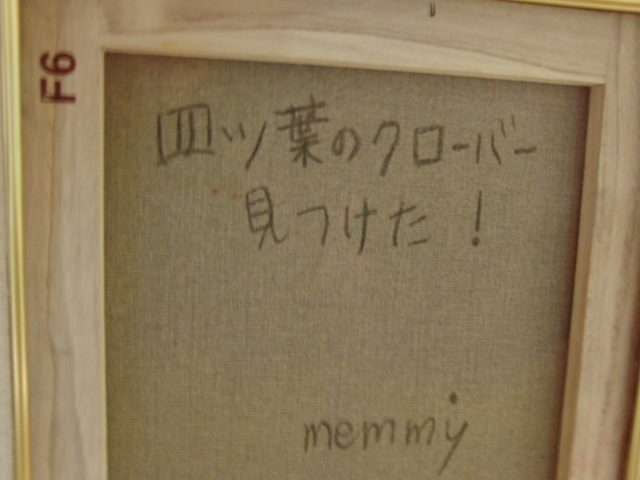 F6
四ツ葉のクローバー
見つけた！
memmy